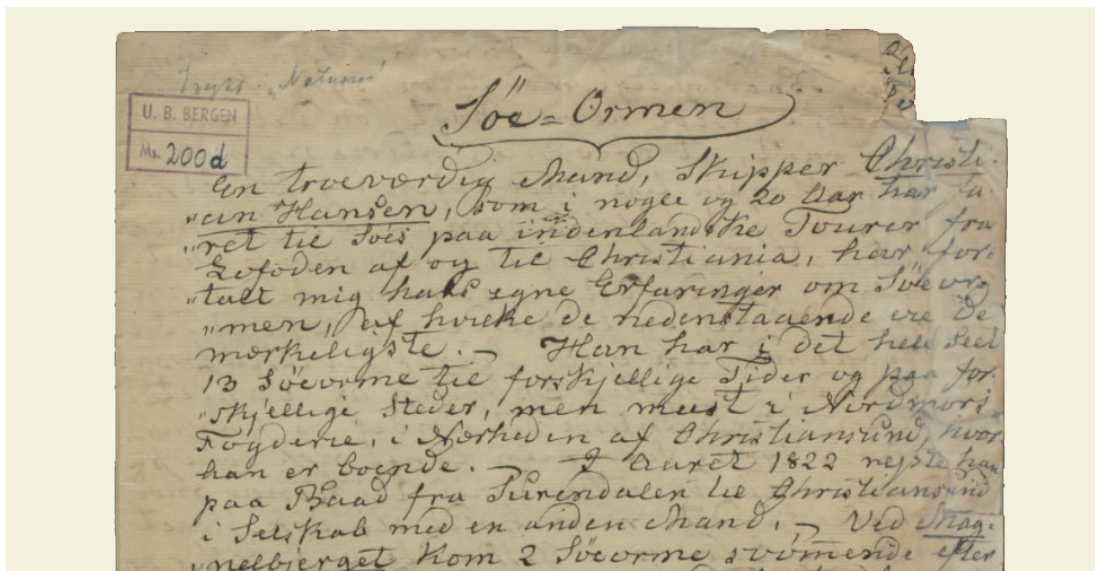 Trykt "Naturen"
U. B. BERGEN
Ms. 200 d
Söe=Ormen
En troeværdig Mand, Skipper Christi-
"an Hansen, som i nogle og 20 Aar har fa
"ret til Söes paa indenlandske Tourer fra
Lofoden af og til Christiania, har for-
"talt mig hans egne Erfaringer om Söeor-
"men, af hvilke de nedenstaaende ere De
mærkeligste. – Han har i det hele Seet
13 Söeorme til forskjellige Tider og paa for-
"skjellige Steder, men meest i Nordmörs
Fogderie, i Nærheden af Christiansund, hvor
han er boende. – I Aaret 1822 rejste han
paa Baad fra Surendalen til Christiansund
i Selskab med en anden Mand. – Ved Mag-
"nelbierget Kom 2 Söeorme svömende efter